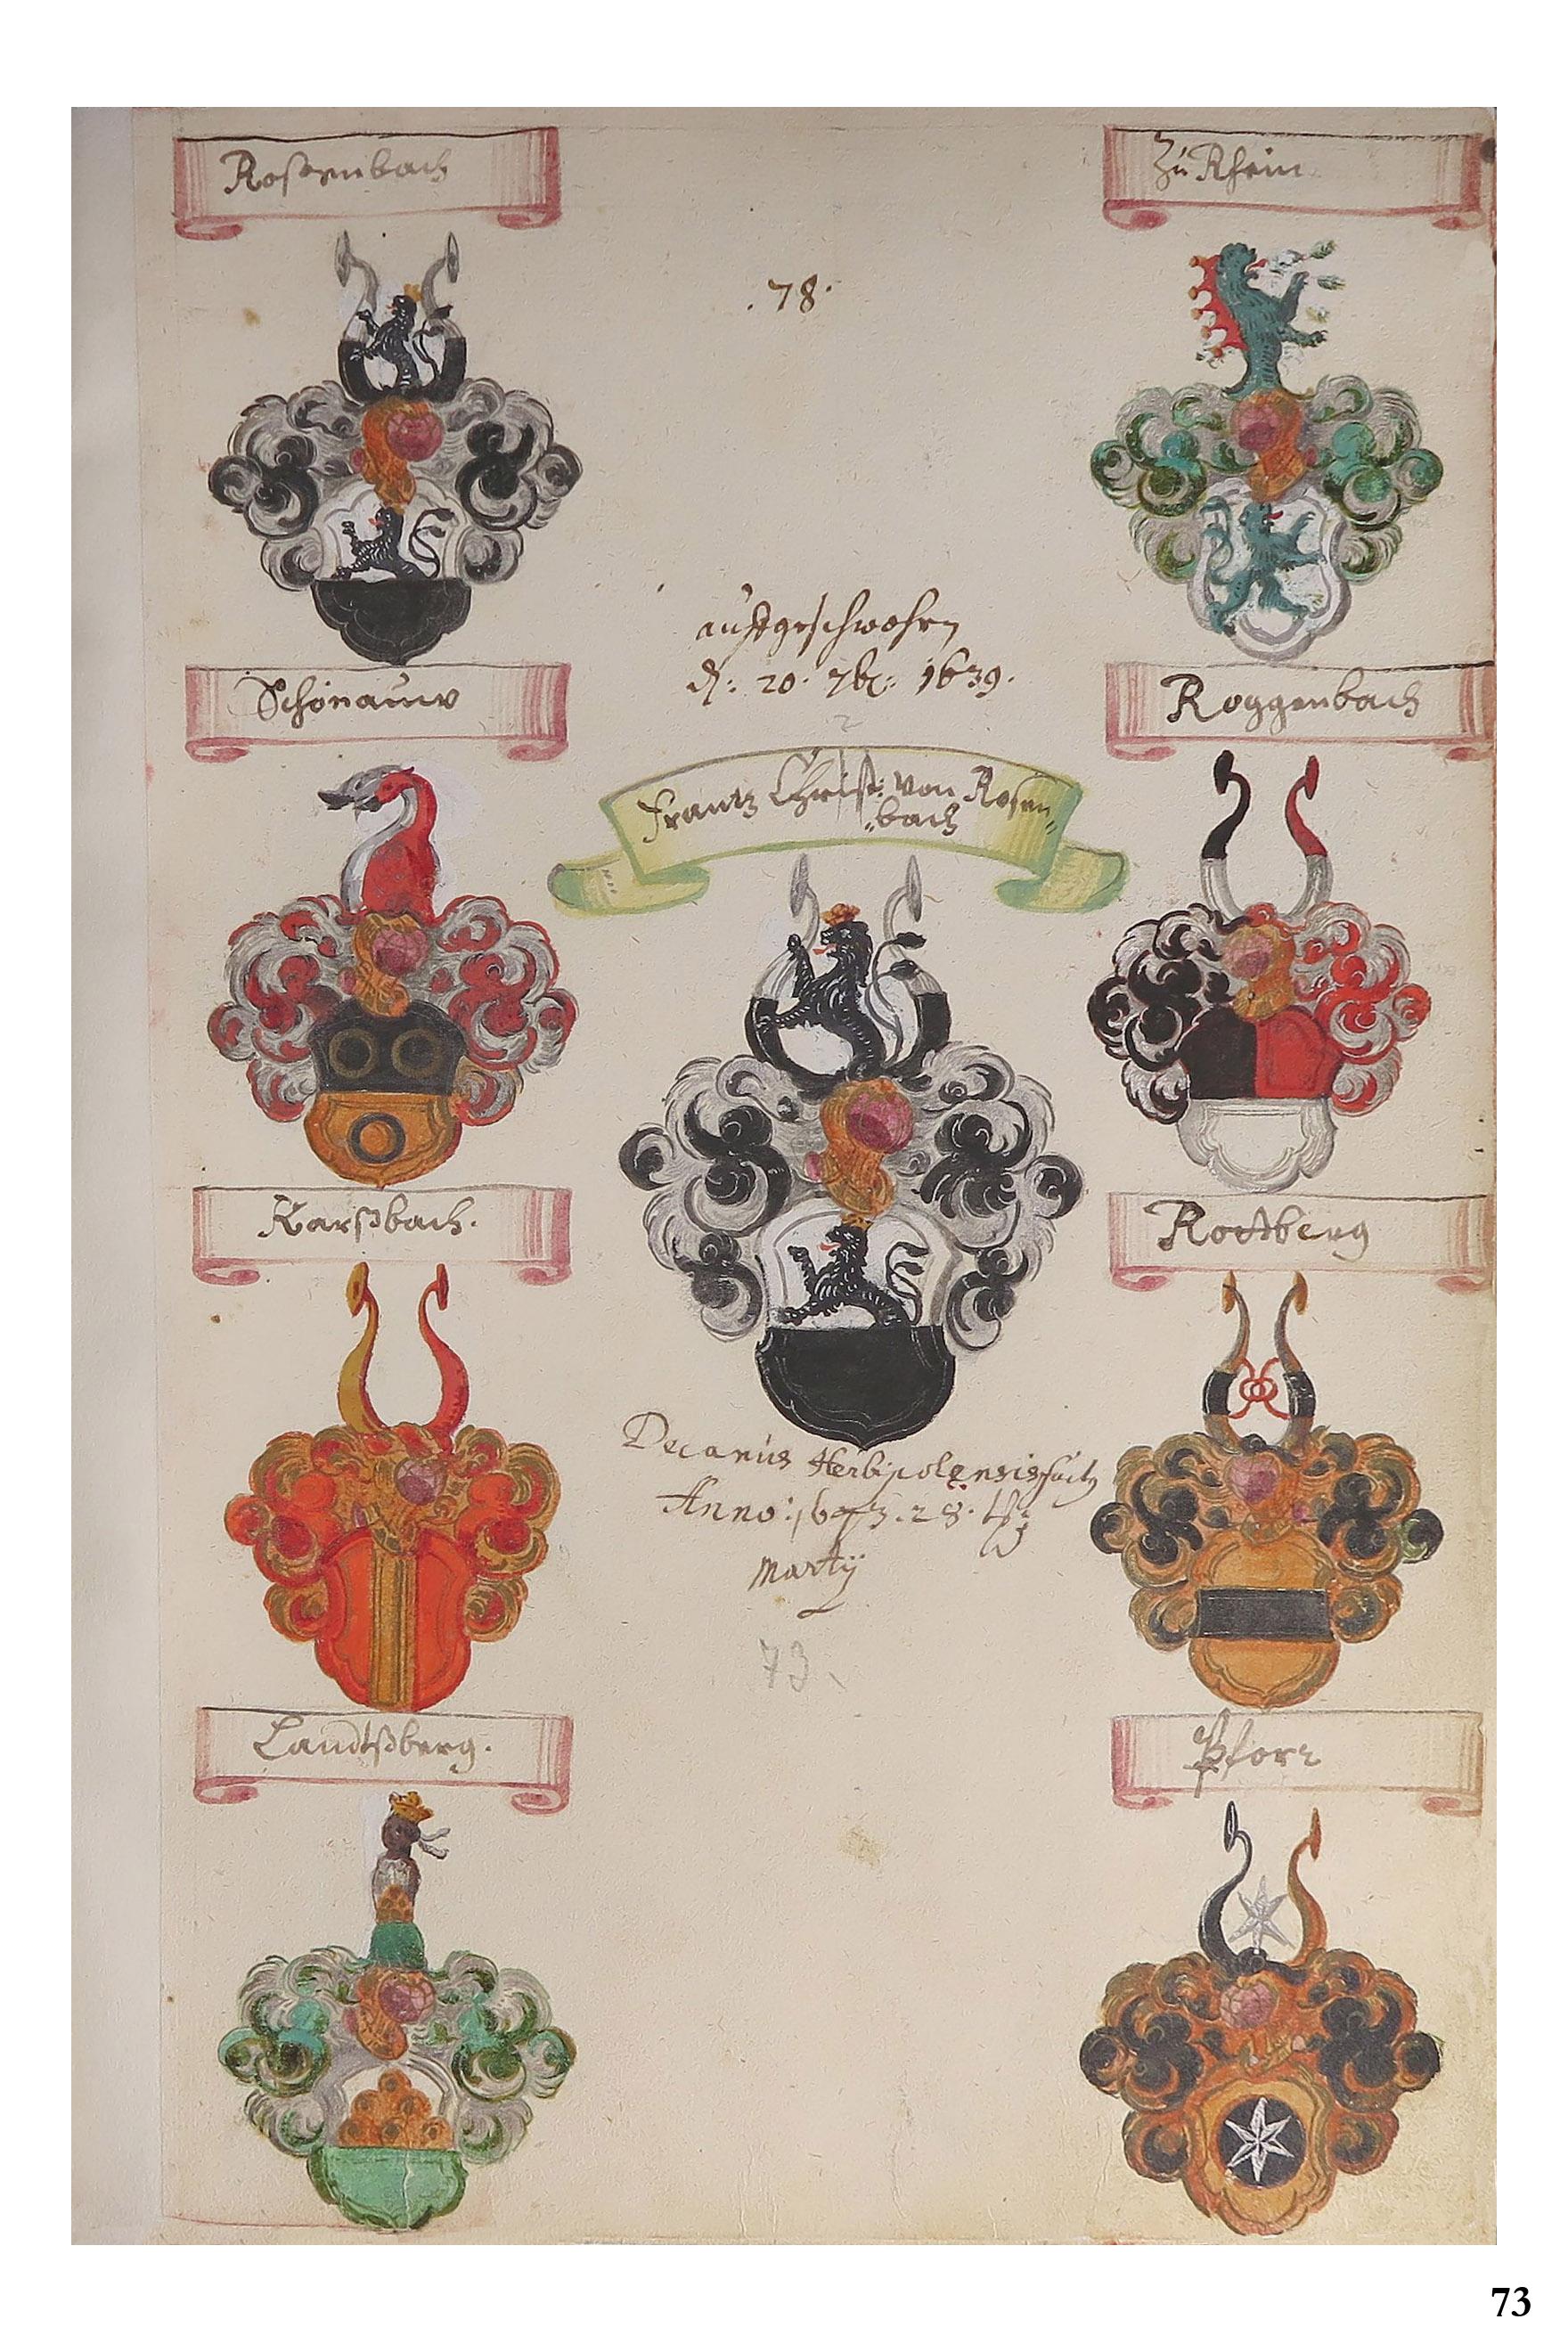 Rosenbach
Zu Rhein
.78.
auffgeschwohren
d: 20. 7b: 1639.
Schönauw
Roggenbach
Frantz Christ: von Rosen
"bach
Karßbach.
Rottberg
Decanus Herbipolensis
Anno: 1673. 28.
Martij
73
Landtßberg.
Pforr
73